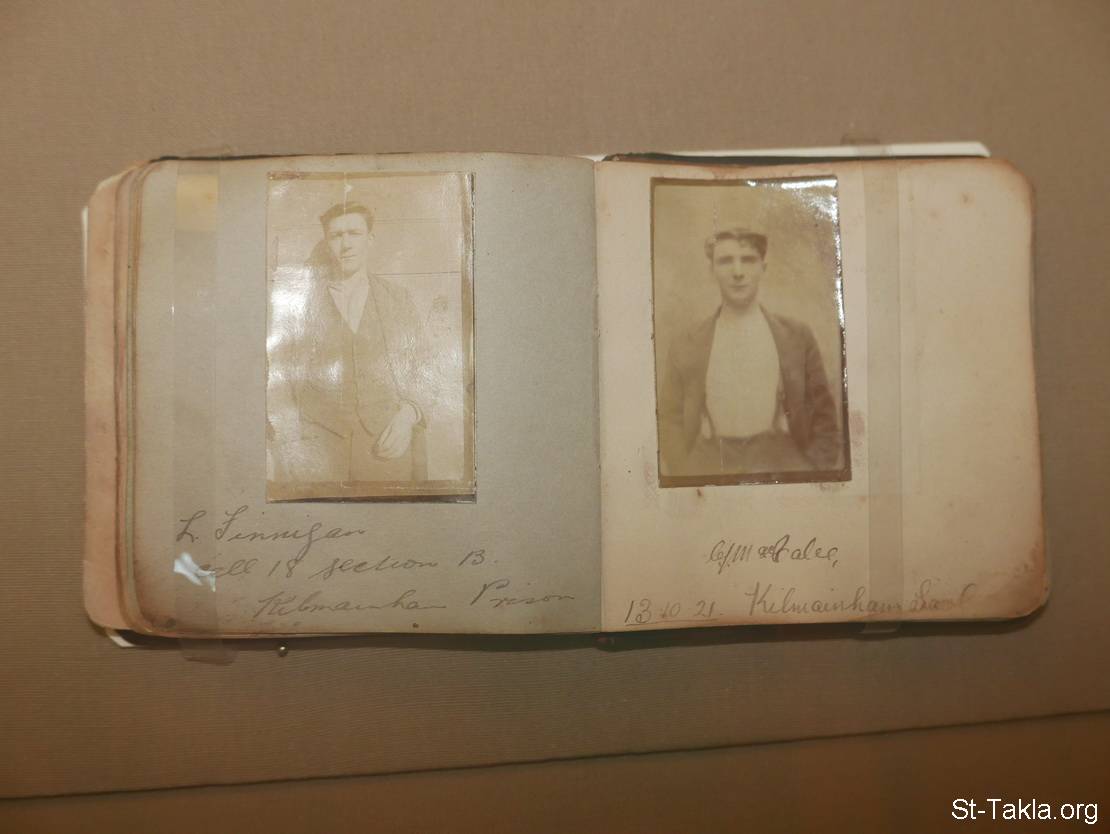 L. Finnigan
Cell 18 section B.
Kilmainham Prison
13-10-21. Kilmainham
St-Takla.org